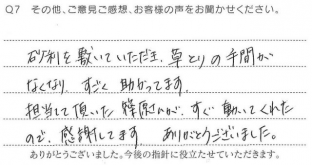 Q7 その他、ご意見ご感想、お客様の声をお聞かせください。
砂利を敷いていただき、草とりの手間が
なくなり、すごく助かってます。
担当して頂いた篠原さんが、すぐ動いてくれた
ので、感謝してます。 ありがとうございました。
ありがとうございました。今後の指針に役立たせていただきます。